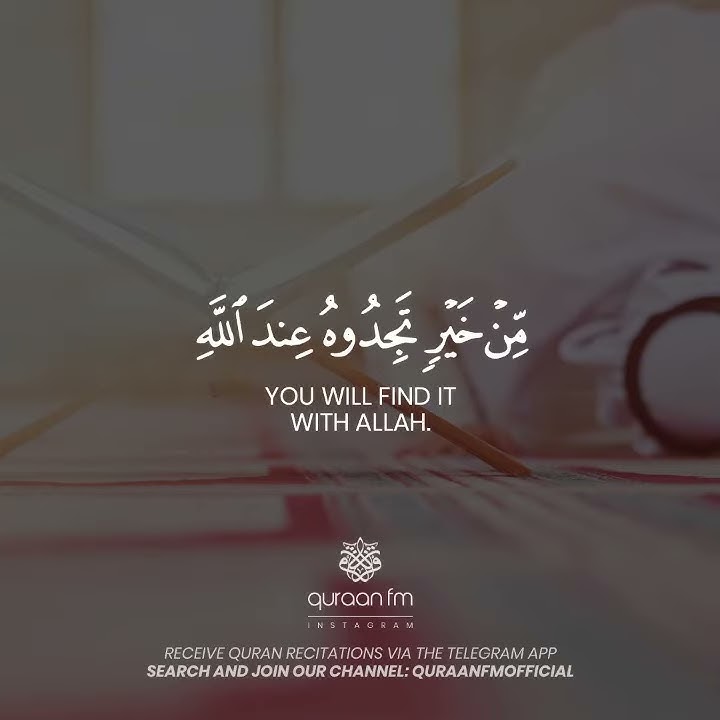 مِّنْ خَيْرٍ تَجِدُوهُ عِندَ ٱللَّهِ
YOU WILL FIND IT
WITH ALLAH.
quraan fm
INSTAGRAM
RECEIVE QURAN RECITATIONS VIA THE TELEGRAM APP
SEARCH AND JOIN OUR CHANNEL: QURAANFMOFFICIAL